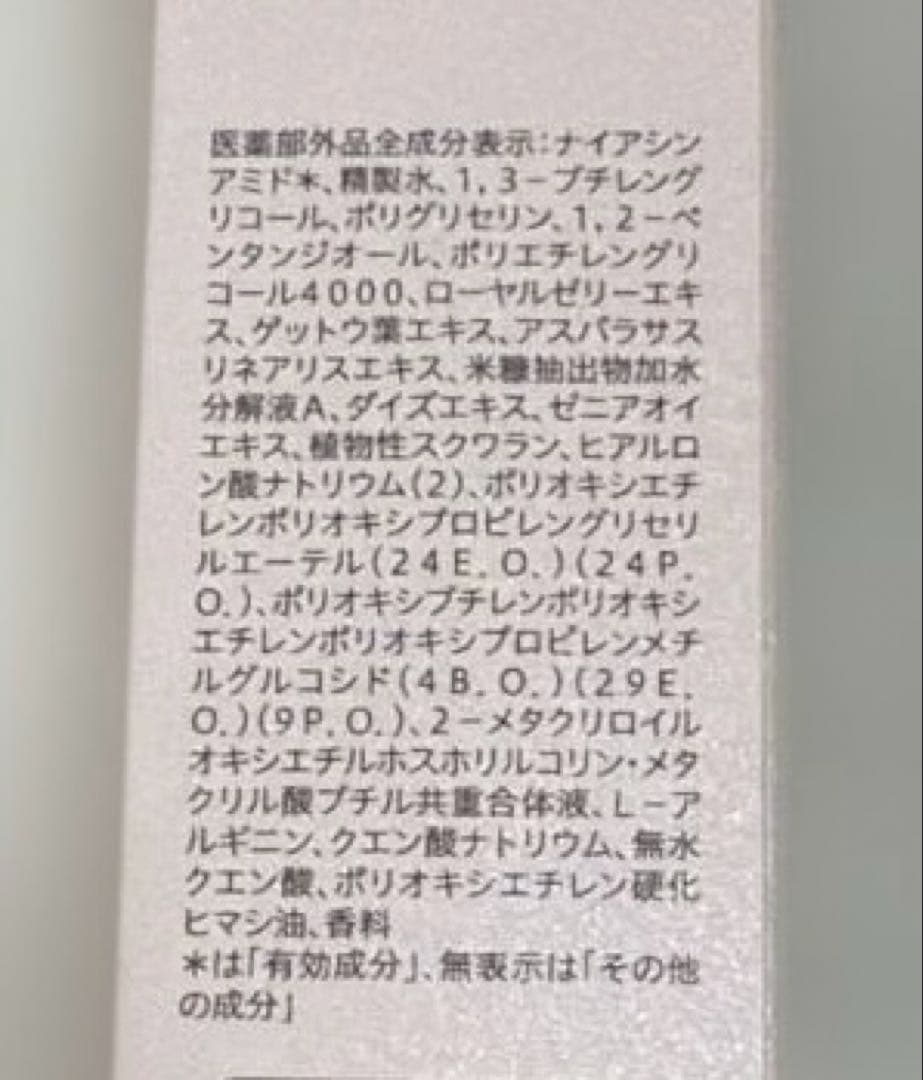 医薬部外品全成分表示：ナイアシン
アミド＊、精製水、1，3－ブチレング
リコール、ポリグリセリン、1，2－ペ
ンタンジオール、ポリエチレングリ
コール4000、ローヤルゼリーエキ
ス、ゲットウ葉エキス、アスパラサス
リネアリスエキス、米糠抽出物加水
分解液A、ダイズエキス、ゼニアオイ
エキス、植物性スクワラン、ヒアルロ
ン酸ナトリウム(2)、ポリオキシエチ
レンポリオキシプロピレングリセリ
ルエーテル(24E．O．)(24P．
O．)、ポリオキシブチレンポリオキシ
エチレンポリオキシプロピレンメチ
ルグルコシド(4B．O．)(29E．
O．)(9P．O．)、2－メタクリロイル
オキシエチルホスホリルコリン・メタ
クリル酸ブチル共重合体液、L－ア
ルギニン、クエン酸ナトリウム、無水
クエン酸、ポリオキシエチレン硬化
ヒマシ油、香料
＊は「有効成分」、無表示は「その他
の成分」